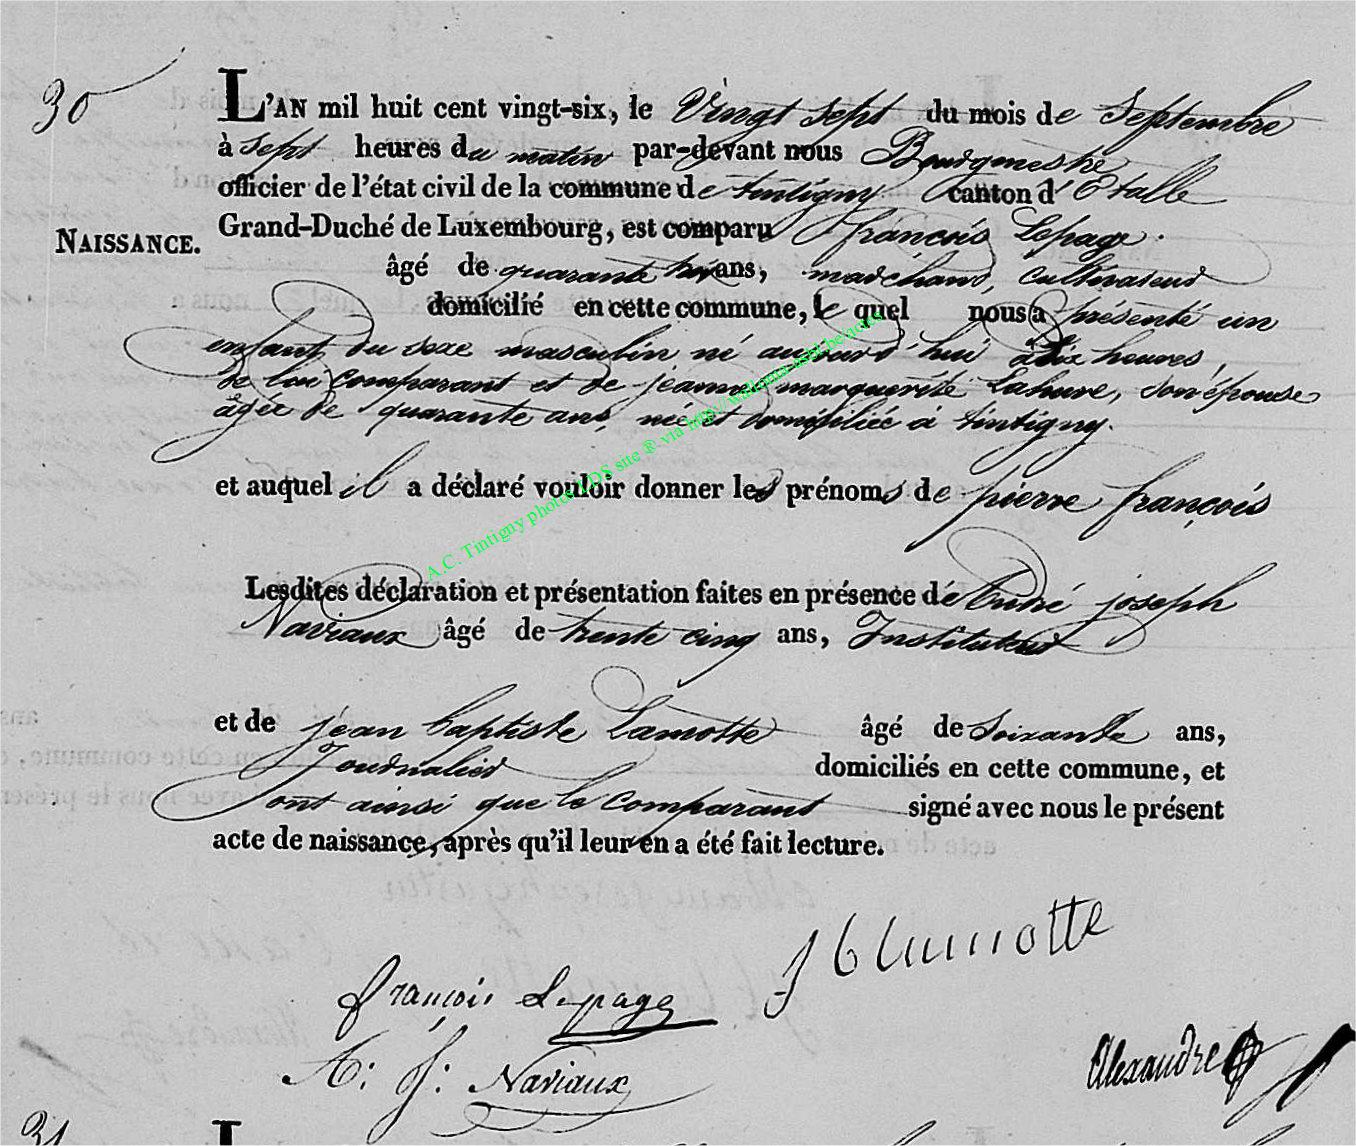 30
L'AN mil huit cent vingt-six, le Vingt sept du mois de Septembre
à sept heures du matin par-devant nous Bourgmestre
officier de l'état civil de la commune de tintigny canton d'Etalle
NAISSANCE.
Grand-Duché de Luxembourg, est comparu françois Lepage.
âgé de quarante ans, marchand, cultivateur
domicilié en cette commune, le quel nous a présenté un
enfant du sexe masculin né aujourd'hui à heures,
de lui comparant et de jeanne marguerite Lahure, son épouse
âgée de quarante ans, née et domiciliée à tintigny.
et auquel il a déclaré vouloir donner les prénoms de pierre françois
Lesdites déclaration et présentation faites en présence de André joseph
Naviaux âgé de trente cinq ans, Instituteur
et de jean baptiste Lamotte âgé de Soixante ans,
Journalier domiciliés en cette commune, et
ont ainsi que le Comparant signé avec nous le présent
acte de naissance, après qu'il leur en a été fait lecture.
J b lamotte
françois Lepage
A: J: Naviaux
Alexandre
31
L
A.C. Tintigny photos LDS site ® via http://wallonia-asbl.be/actes